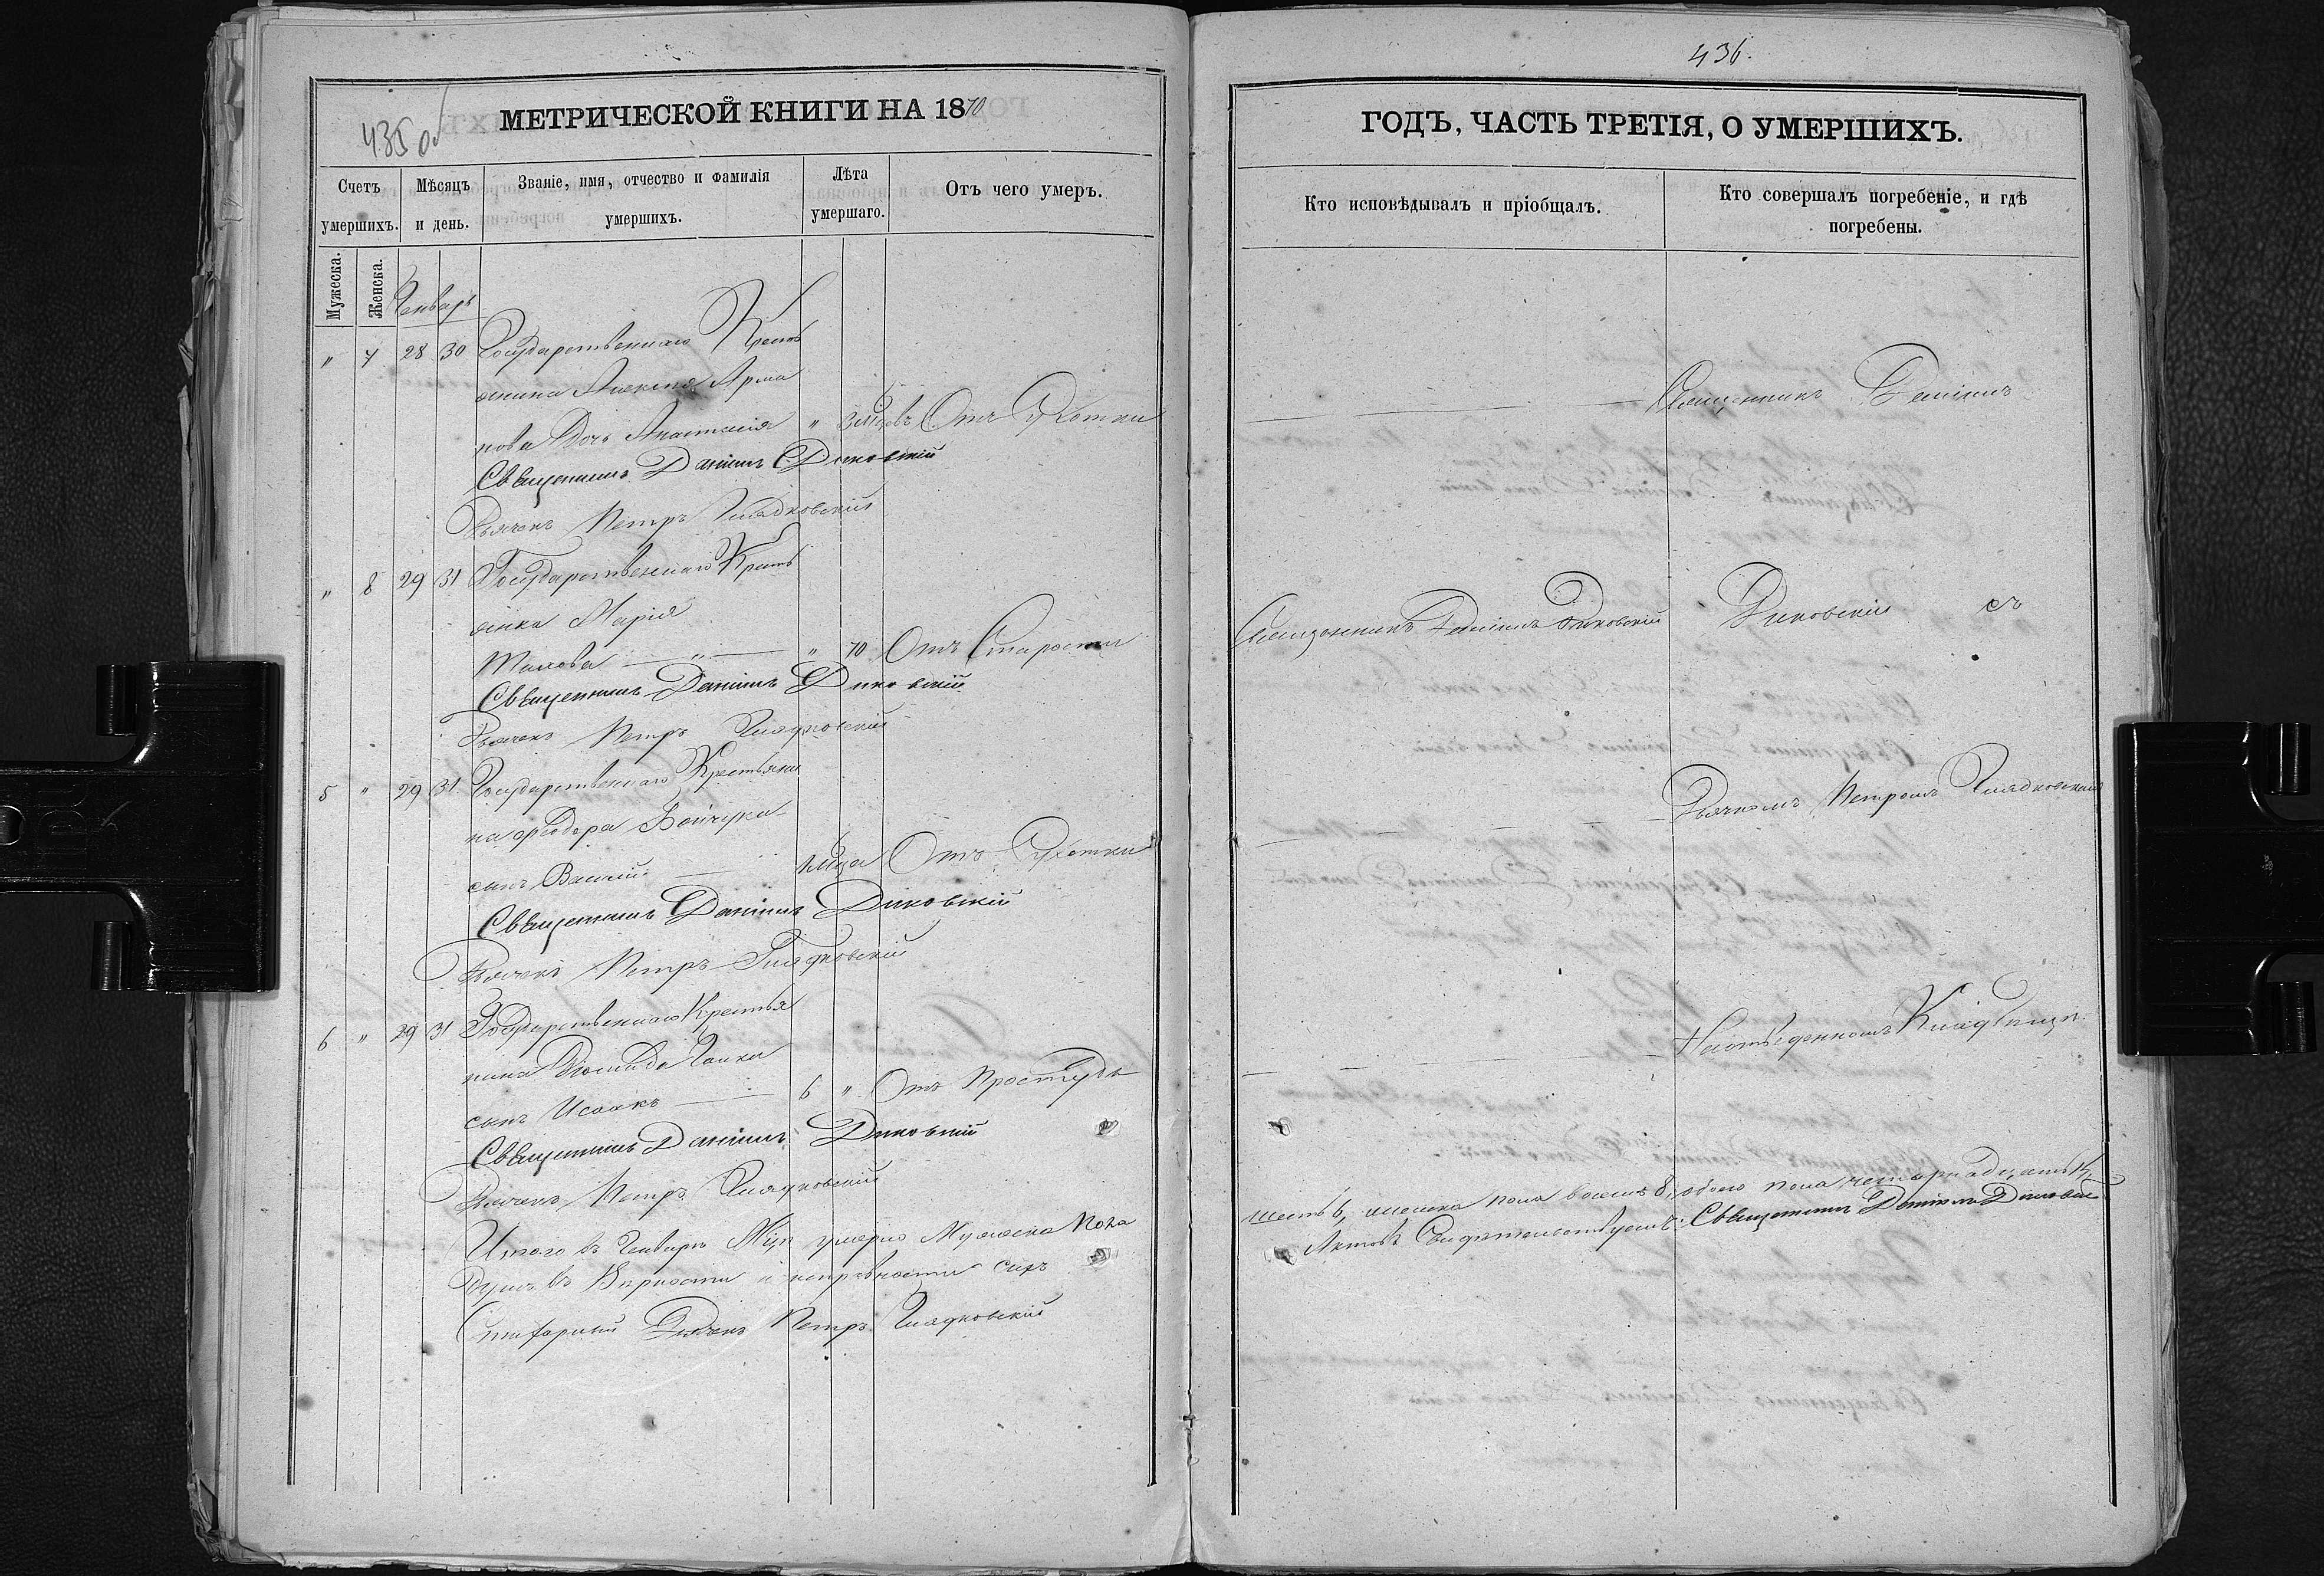 435 об
МЕТРИЧЕСКОЙ КНИГИ НА 1870
Счетъ умершихъ.
Мѣсяцъ и день.
Званіе, имя, отчество и фамилія умершихъ.
Лѣта умершаго.
Отъ чего умеръ.
Мужеска.
Женска.
Генварь
" 7 28 30 Государственнаго Кресть
янина Алексія Арма
нова Дочь Анастасія " 3 Мцовъ Отъ Сухотки
Священникъ Даніилъ Диковскій
Дьячекъ Петръ Гиядковскій
" 8 29 31 Государственнаго Кресть
янка Марія
" 70 Отъ Старости
Священникъ Даніилъ Диковскій
Дьячекъ Петръ Гиядковскій
5 " 29 31 Государственнаго Крестьяни
на Ѳеодора Бойчука
сынъ Василій Мца Отъ Сухотки
Священникъ Даніилъ Диковскій
Дьячекъ Петръ Гиядковскій
6 " 29 31 Государственнаго Крестья
нина
сынъ Исаакъ 6 " Отъ Простуды
Священникъ Даніилъ Диковскій
Дьячекъ Петръ Гиядковскій
Итого въ Генварѣ Мцѣ умерло Мужеска пола
Душъ въ Вѣрности и исправности сихъ
Дьячекъ Петръ Гиядковскій
436.
ГОДЪ, ЧАСТЬ ТРЕТІЯ, О УМЕРШИХЪ.
Кто исповѣдывалъ и пріобщалъ.
Кто совершалъ погребеніе, и гдѣ погребены.
Священникъ Даніилъ
Священникъ Даніилъ Диковскій
Диковскій съ
Дьячкомъ Петромъ Гиядковскимъ
На отведенномъ Кладбищѣ.
шесть 6, женска пола восемь 8, обоего пола четырнадцать 14,
Актовъ Свидѣтельствуемъ: Священникъ Даніилъ Диковскій